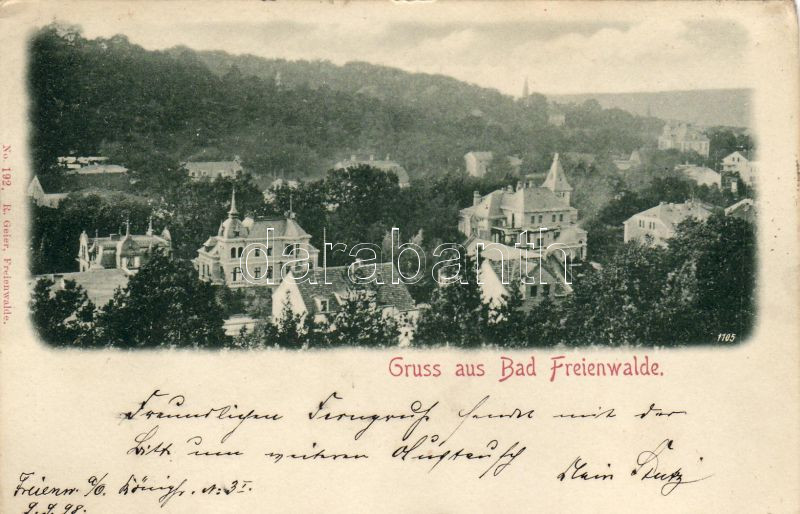 No. 192. R. Geier, Freienwalde.
darabanth
1105
Gruss aus Bad Freienwalde.
Freundlichen Ferngruß sendet mit der
Bitte um weiteren Austausch
Freienw. a/O. Königs